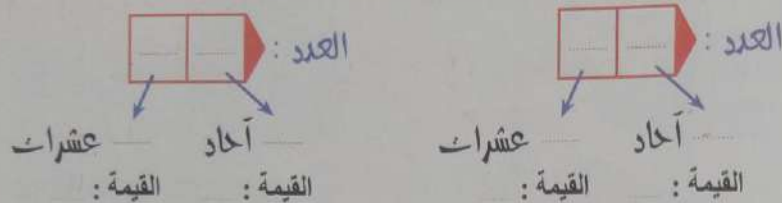 العدد :
........ ........
........ آحاد ........ عشرات
القيمة : ........ القيمة : ........
العدد :
........ ........
........ آحاد ........ عشرات
القيمة : ........ القيمة : ........